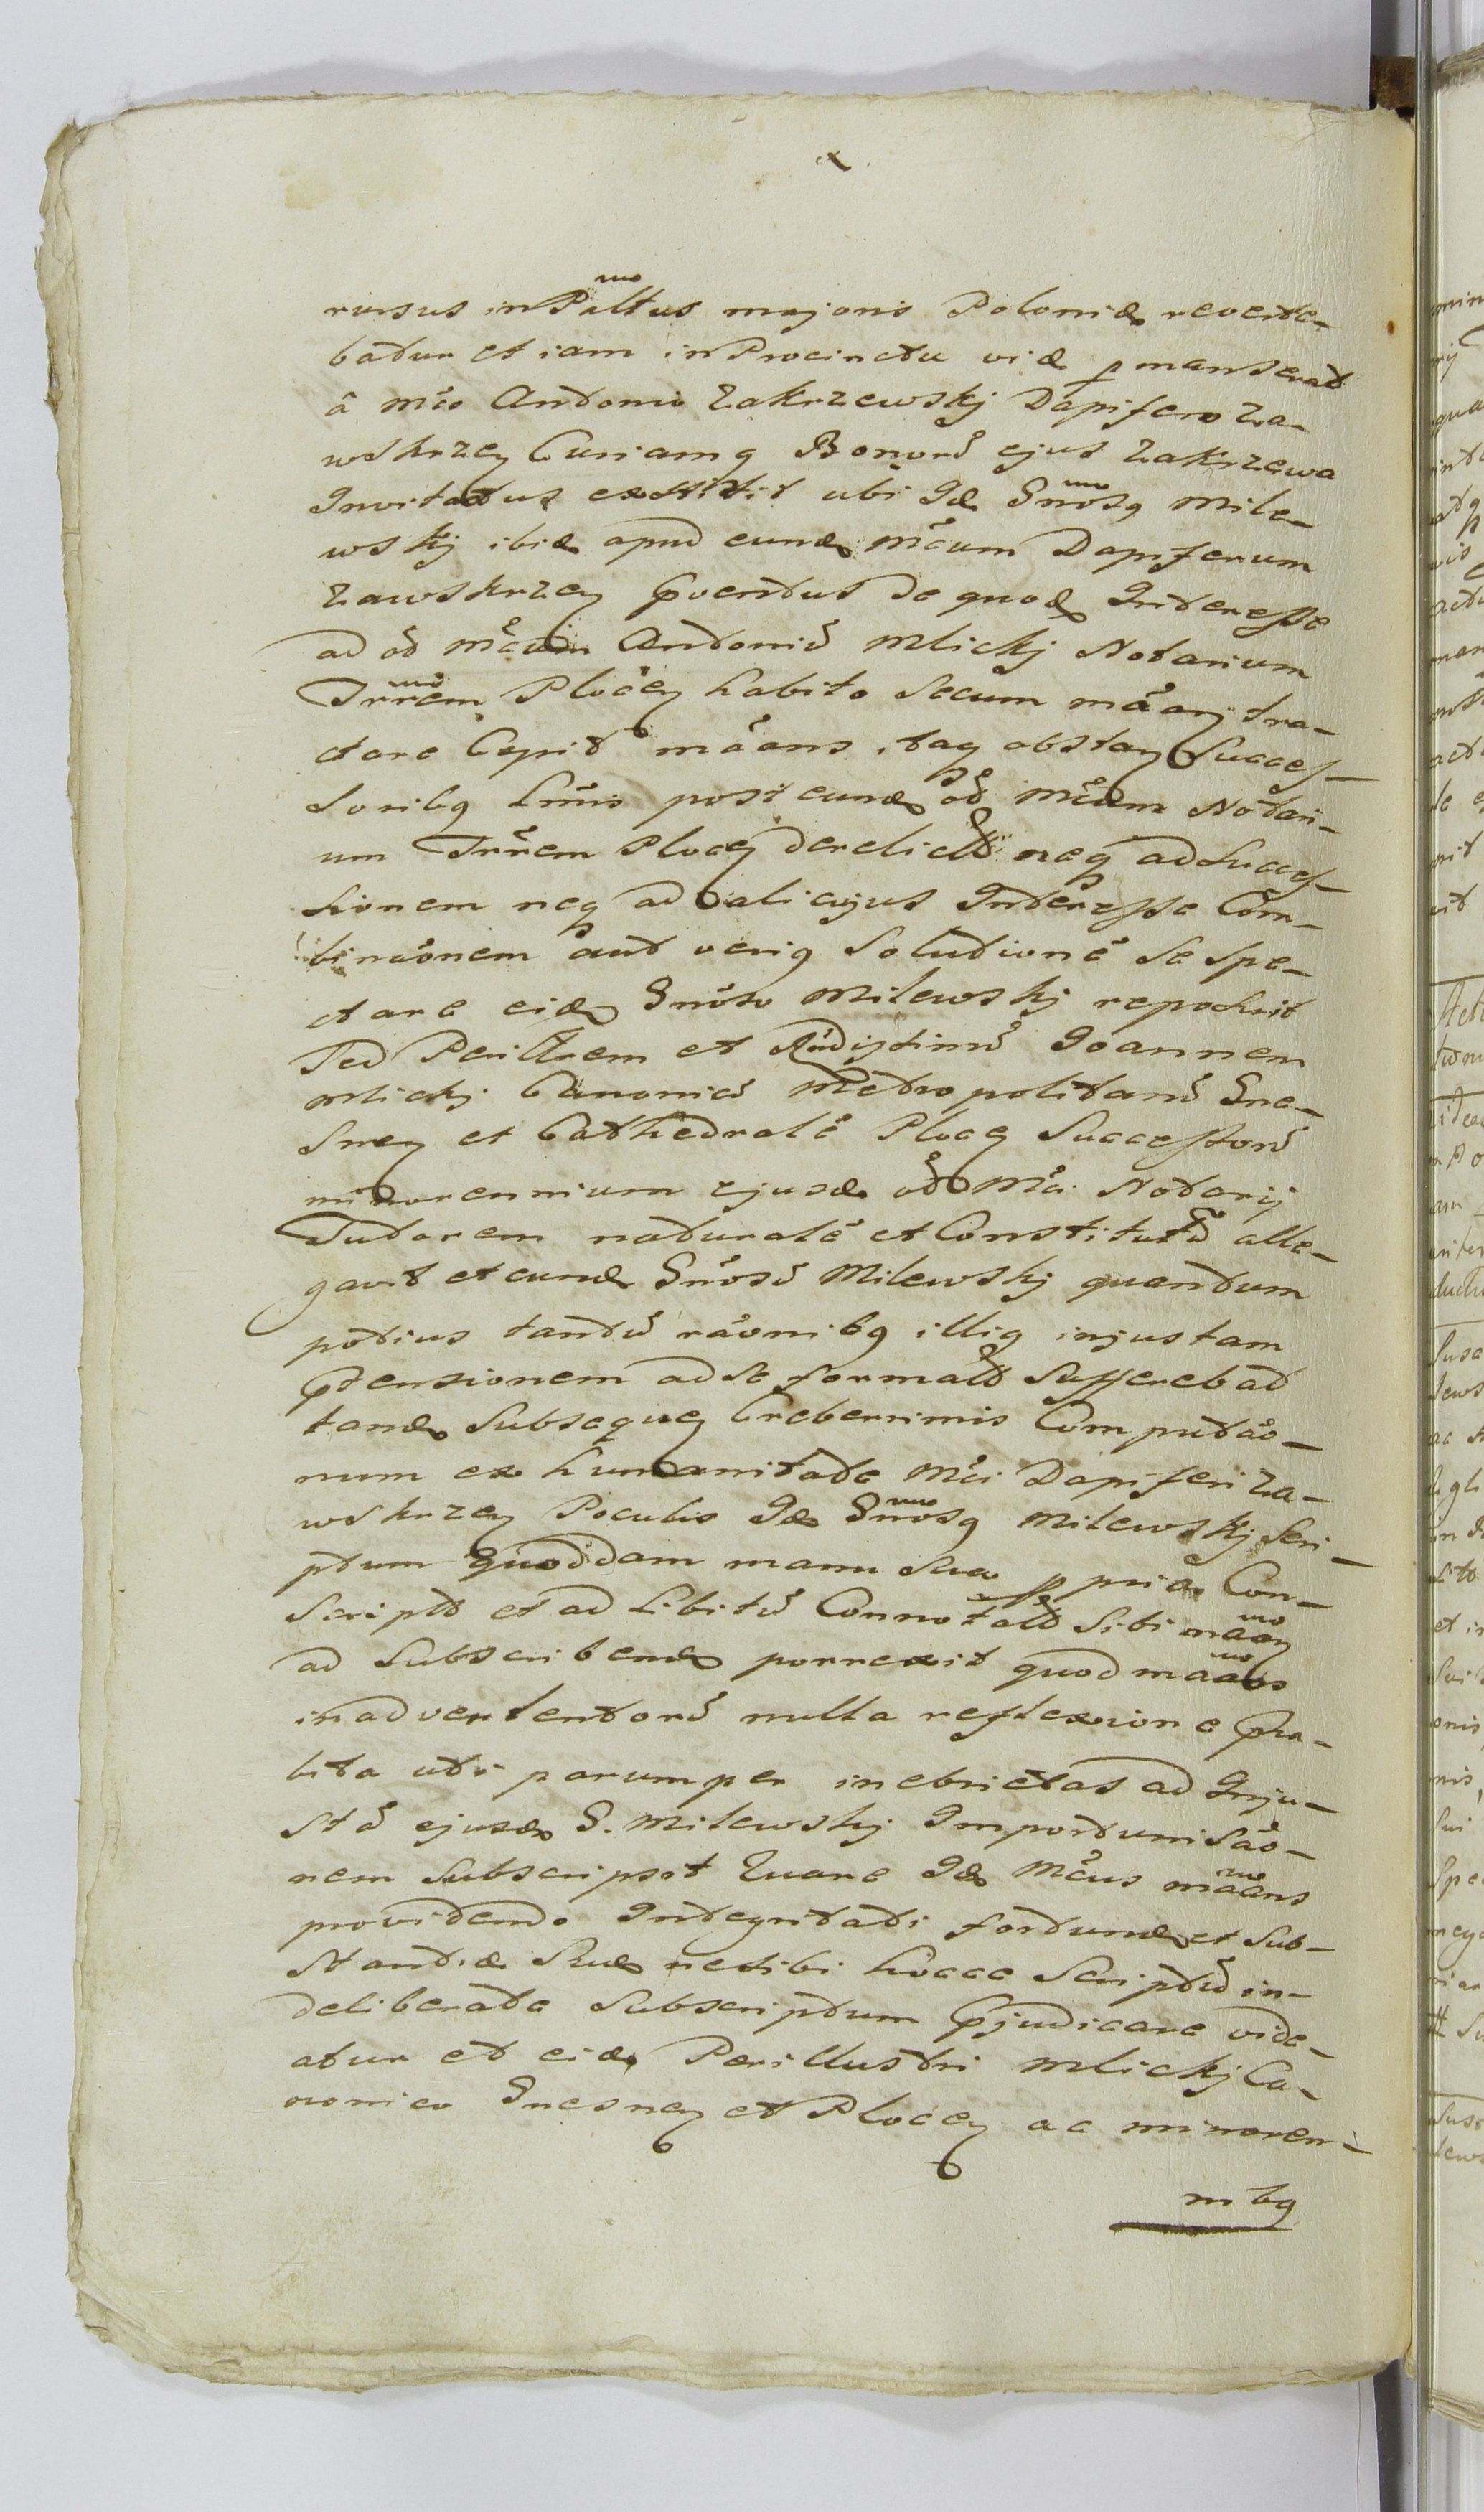 rursus in Palltus majoris Poloniæ reverte-
batur et iam in Procinctu viæ p manserat
â mco Antonio Zakrzewskj Dapifero Za-
wskrzeg Curiamq Bonorũ ejus Zakrzewa
Invitatus extitit ubi Idē Gnosq Mile-
wskj ibidē apud eundē mcum Dapiferum
Zawskrzeg pventus de quodē Interesse
ad ōd mcum Antoniũ Mlickj Notarium
Trrem Ploceg habito Secum mãoñ tra-
ctare Cepit mãans, taq obstag Succes-
soribq hmis post eundē ōd mcum Notari-
um Trrem Ploceg derelictō neq ad Succes-
sionem neq ad alicujus Interesse Com-
binãonem aut veriq Solutionē Se Spe-
ctare eidē Gnoso Milewskj reposuit
Sed Perillrem et Rndissimũ Joannem
Mlickj Canonicũ Metropolitanũ Gne-
sneg et Cathedralē Ploceg Successorũ
minorennium ejusdē ōd Mci Notarij
Tutorem naturalē et Constitutũ alle-
gavit et eundē Gnosũ Milewskj quantum
potius tantũ rãonibq illiq injustam
ptensionem ad Se formatō Sufferebat
tandē Subsequeg Creberrimis Computão-
num ex humanitate Mci Dapiferi Za-
wskrzeg Poculis Idē Gnosq Milewskj Scri-
ptum quoddam manu Sua p pria Con-
scriptō et ad Libitũ Connotatō Sibi mãoñ
ad Subscribendē porrexit quod mãans
inadvertentorũ nulla reflexione pha-
bita uti parumper inebrietas ad Inju-
stã ejusdē G. Milewskj Importunisão-
nem Subscripsit Quare Idē Mcus mãans
providendo Integritati fortunæ et Sub-
stantiæ Suæ ne Sibi hocce Scriptũ in-
deliberate Subscriptum pjudicare vide-
atur et eidē Perillustri Mlickj Ca-
nonico Gnesneg et Ploceg ac minoren-
nibq